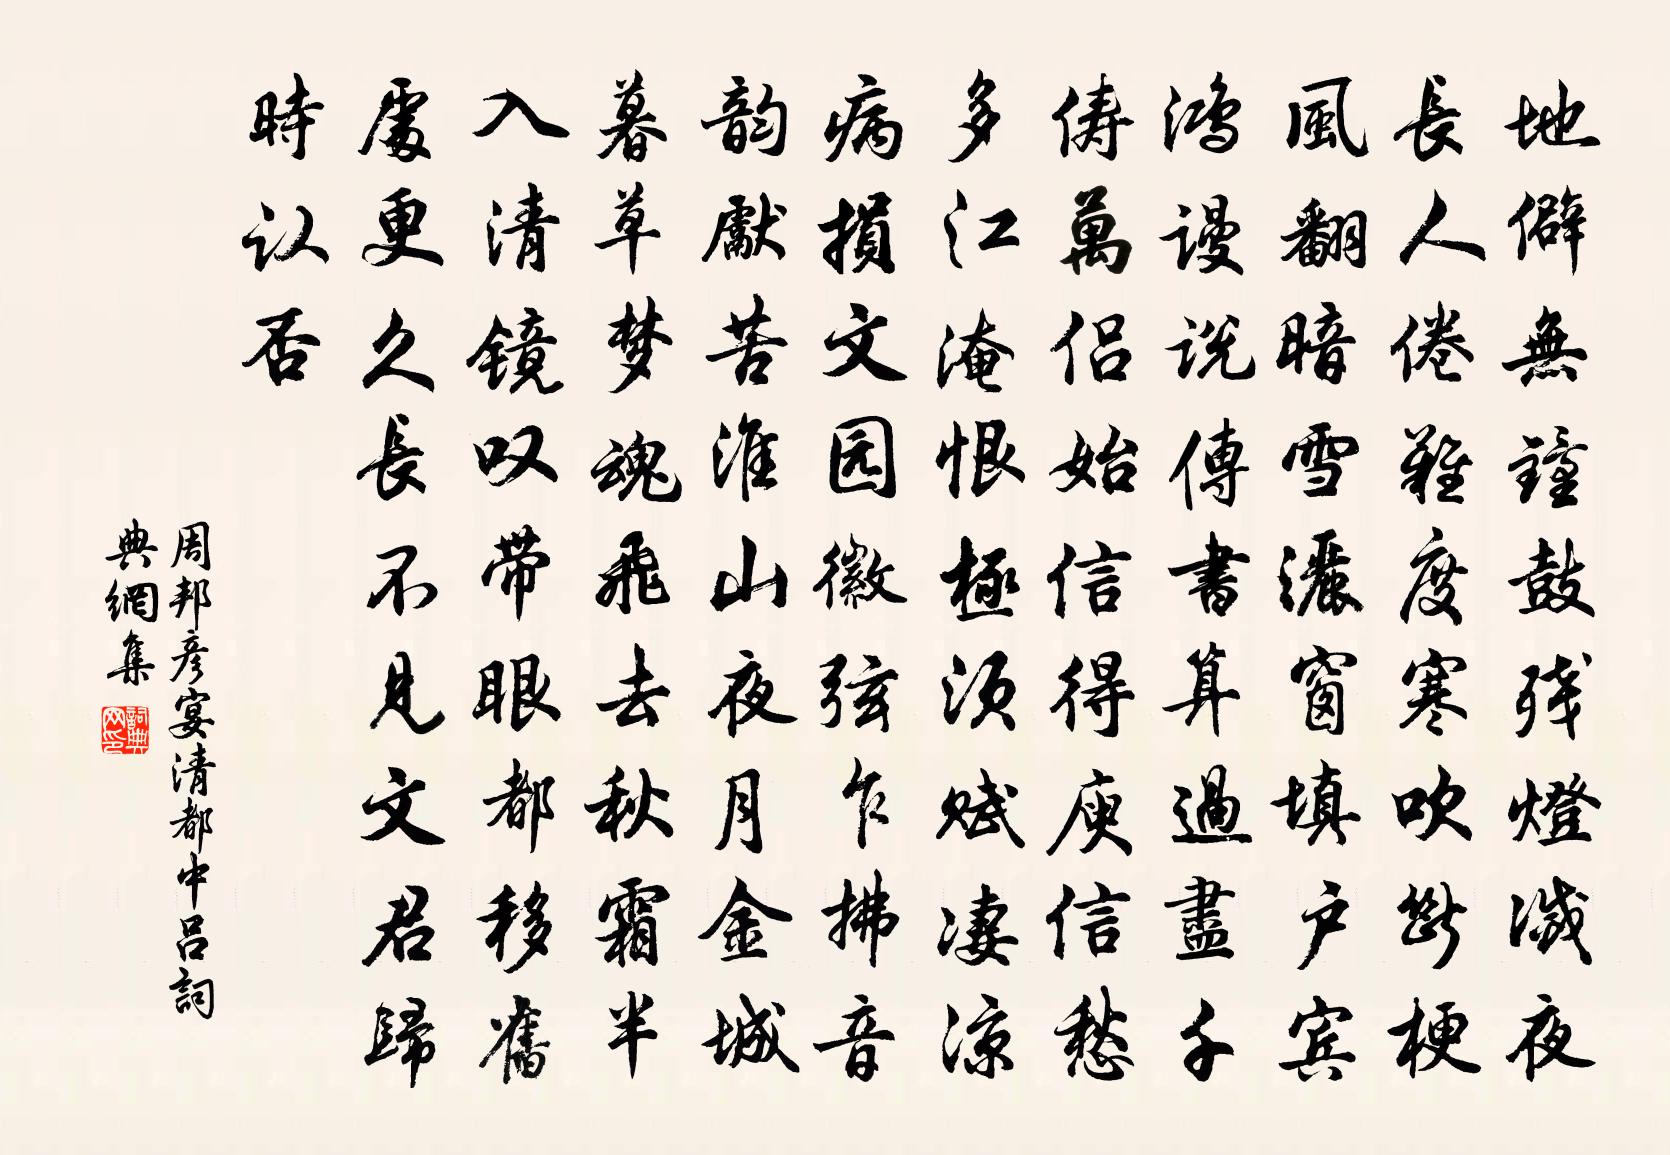 地僻無鐘鼓残燈滅夜
長人倦難度寒吹斷梗
風翻暗雪灑窗填户宾
鸿謾说傳書算過盡千
俦萬侣始信得庾信愁
多江淹恨極须赋凄凉
病損文园徽弦乍拂音
韵獻苦淮山夜月金城
暮草梦魂飛去秋霜半
入清镜叹带眼都移舊
處更久長不見文君歸
時认否
周邦彦宴清都中吕詞
典網集
詞典网印